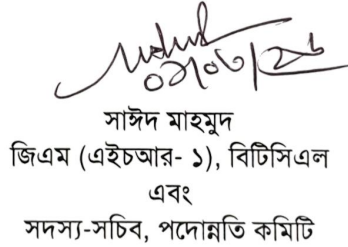 সাঈদ মাহমুদ
জিএম (এইচআর- ১), বিটিসিএল
এবং
সদস্য-সচিব, পদোন্নতি কমিটি